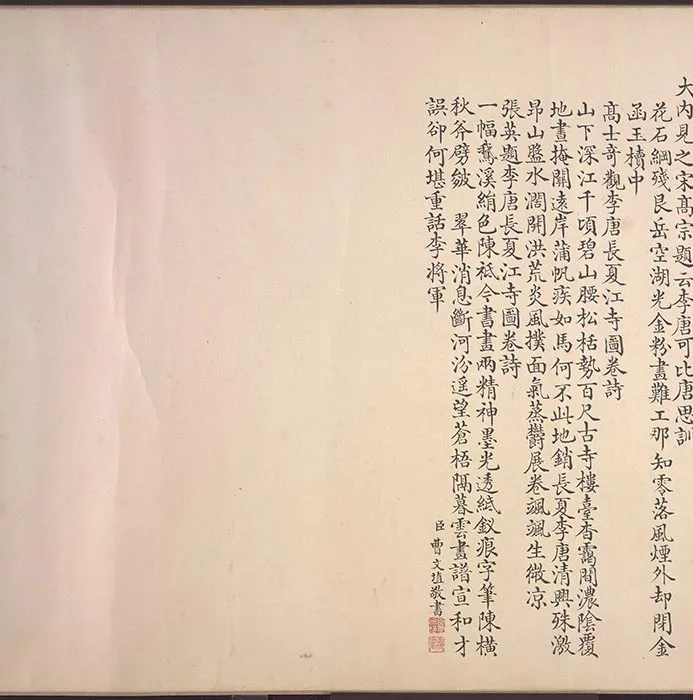 大內見之宋髙宗題云李唐可比唐思訓
花石綱殘艮岳空湖光金粉畫難工那知零落風煙外却閉金
函玉櫝中
髙士奇觀李唐長夏江寺圖卷詩
山下深江千頃碧山腰松栝勢百尺古寺樓臺杳靄間濃陰覆
地晝掩關遠岸蒲帆疾如馬何不此地銷長夏李唐清興殊激
昻山盤水濶開洪荒炎風撲面氣蒸欝展卷颯颯生微凉
張英題李唐長夏江寺圖卷詩
一幅鵞溪絹色陳祗今書畫兩精神墨光透紙釵痕字筆陳橫
秋斧劈皴 翠華消息斷河汾遥望蒼梧隔暮雲畫譜宣和才
誤卻何堪重話李將軍
臣曹文埴敬書